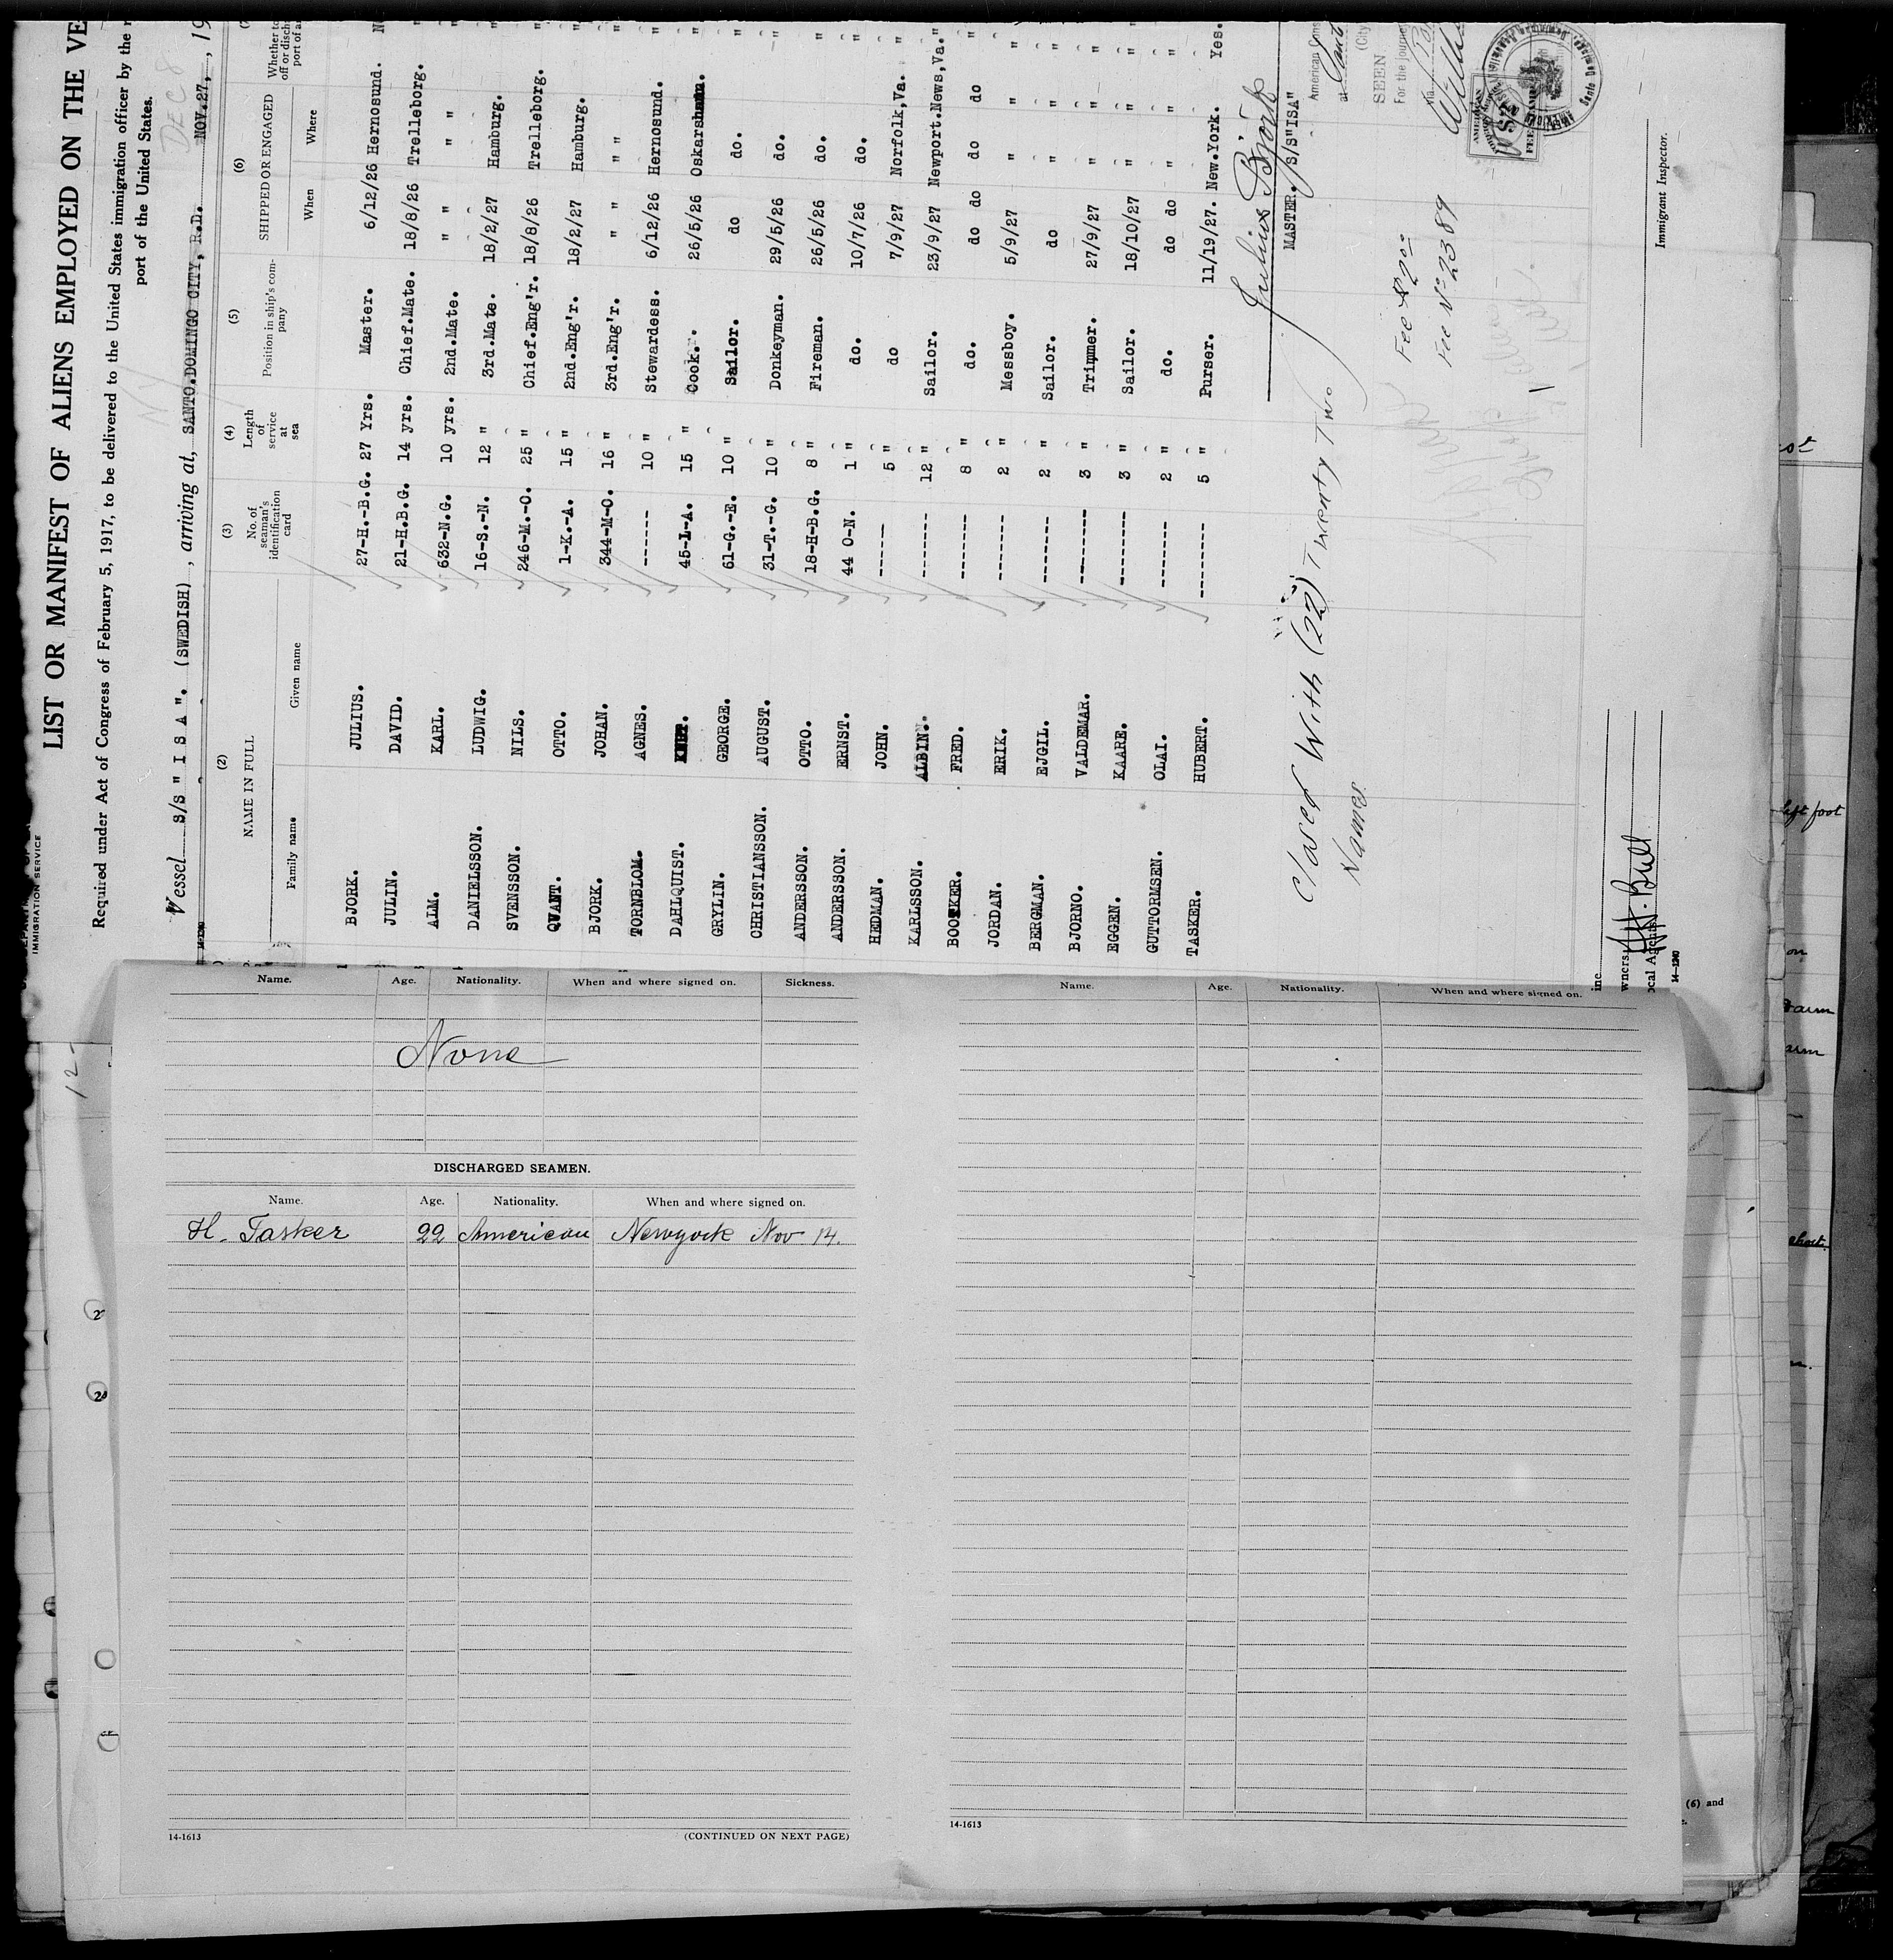 LIST OR MANIFEST OF ALIENS EMPLOYED ON THE VE
Required under Act of Congress of February 5, 1917, to be delivered to the United States immigration officer by the
port of the United States.
IMMIGRATION SERVICE
DEC 8
Vessel S/S " I S A ". (SWEDISH) , arriving at, SANTO.DOMINGO CITY, R.D. NOV.27, , 19
(2) (3) (4) (5) (6)
NAME IN FULL No. of seaman's identification card Length of service at sea Position in ship's company SHIPPED OR ENGAGED Whether to
off or disch
port of a
Family name Given name When Where
BJORK. JULIUS. 27-H.-B.G. 27 Yrs. Master. 6/12/26 Hernosund.
JULIN. DAVID. 21-H.B.G. 14 yrs. Chief.Mate. 18/8/26 Trelleborg. "
ALM. KARL. 632-N.G. 10 yrs. 2nd.Mate. " " " " "
DANIELSSON. LUDWIG. 16-S.-N. 12 " 3rd.Mate. 18/2/27 Hamburg. "
SVENSSON. NILS. 246-M.-O. 25 " Chief.Eng'r. 18/8/26 Trelleborg. "
QVANT. OTTO. 1-K.-A. 15 " 2nd.Eng'r. 18/2/27 Hamburg. "
BJORK. JOHAN. 344-M-O. 16 " 3rd.Eng'r. " " " " "
TORNBLOM. AGNES. ------ 10 " Stewardess. 6/12/26 Hernosund. "
DAHLQUIST. 45-L-A. 15 " Cook. 26/5/26 "
GRYLIN. GEORGE. 61-G.-E. 10 " Sailor. do do. "
CHRISTIANSSON. AUGUST. 31-T.-G. 10 " Donkeyman. 29/5/26 do. "
ANDERSSON. OTTO. 18-H-B.G. 8 " Fireman. 26/5/26 do. "
ANDERSSON. ERNST. 44 O-N. 1 " do. 10/7/26 do. "
HEDMAN. JOHN. ------ 5 " do 7/9/27 Norfolk,Va. "
KARLSSON. ALBIN. -------- 12 " Sailor. 23/9/27 Newport.News,Va."
FRED. -------- 8 " do. do do do do "
JORDAN. ERIK. -------- 2 " Messboy. 5/9/27 " " "
BERGMAN. EJGIL. -------- 2 " Sailor. do " " "
BJORNO. VALDEMAR. -------- 3 " Trimmer. 27/9/27 " " "
EGGEN. KAARE. -------- 3 " Sailor. 18/10/27 " " "
GUTTORMSEN. OLAI. -------- 2 " do. do do " " "
TASKER. HUBERT. -------- 5 " Purser. 11/19/27. New.York. Yes.
Julius Bjork
MASTER. S/S"ISA"
Closed With (22) Twenty Two
Names
American Cons
at
(City
SEEN
For the journey
Via
Fee $2.00
Fee No 2389
Immigrant Inspector.
14-1240
Name. Age. Nationality. When and where signed on. Sickness.
None
DISCHARGED SEAMEN.
Name. Age. Nationality. When and where signed on.
H. Tasker 22 American Newyork Nov 14.
14-1613 (CONTINUED ON NEXT PAGE)
Name. Age. Nationality. When and where signed on.
14-1613
left foot
on
arm
(6) and